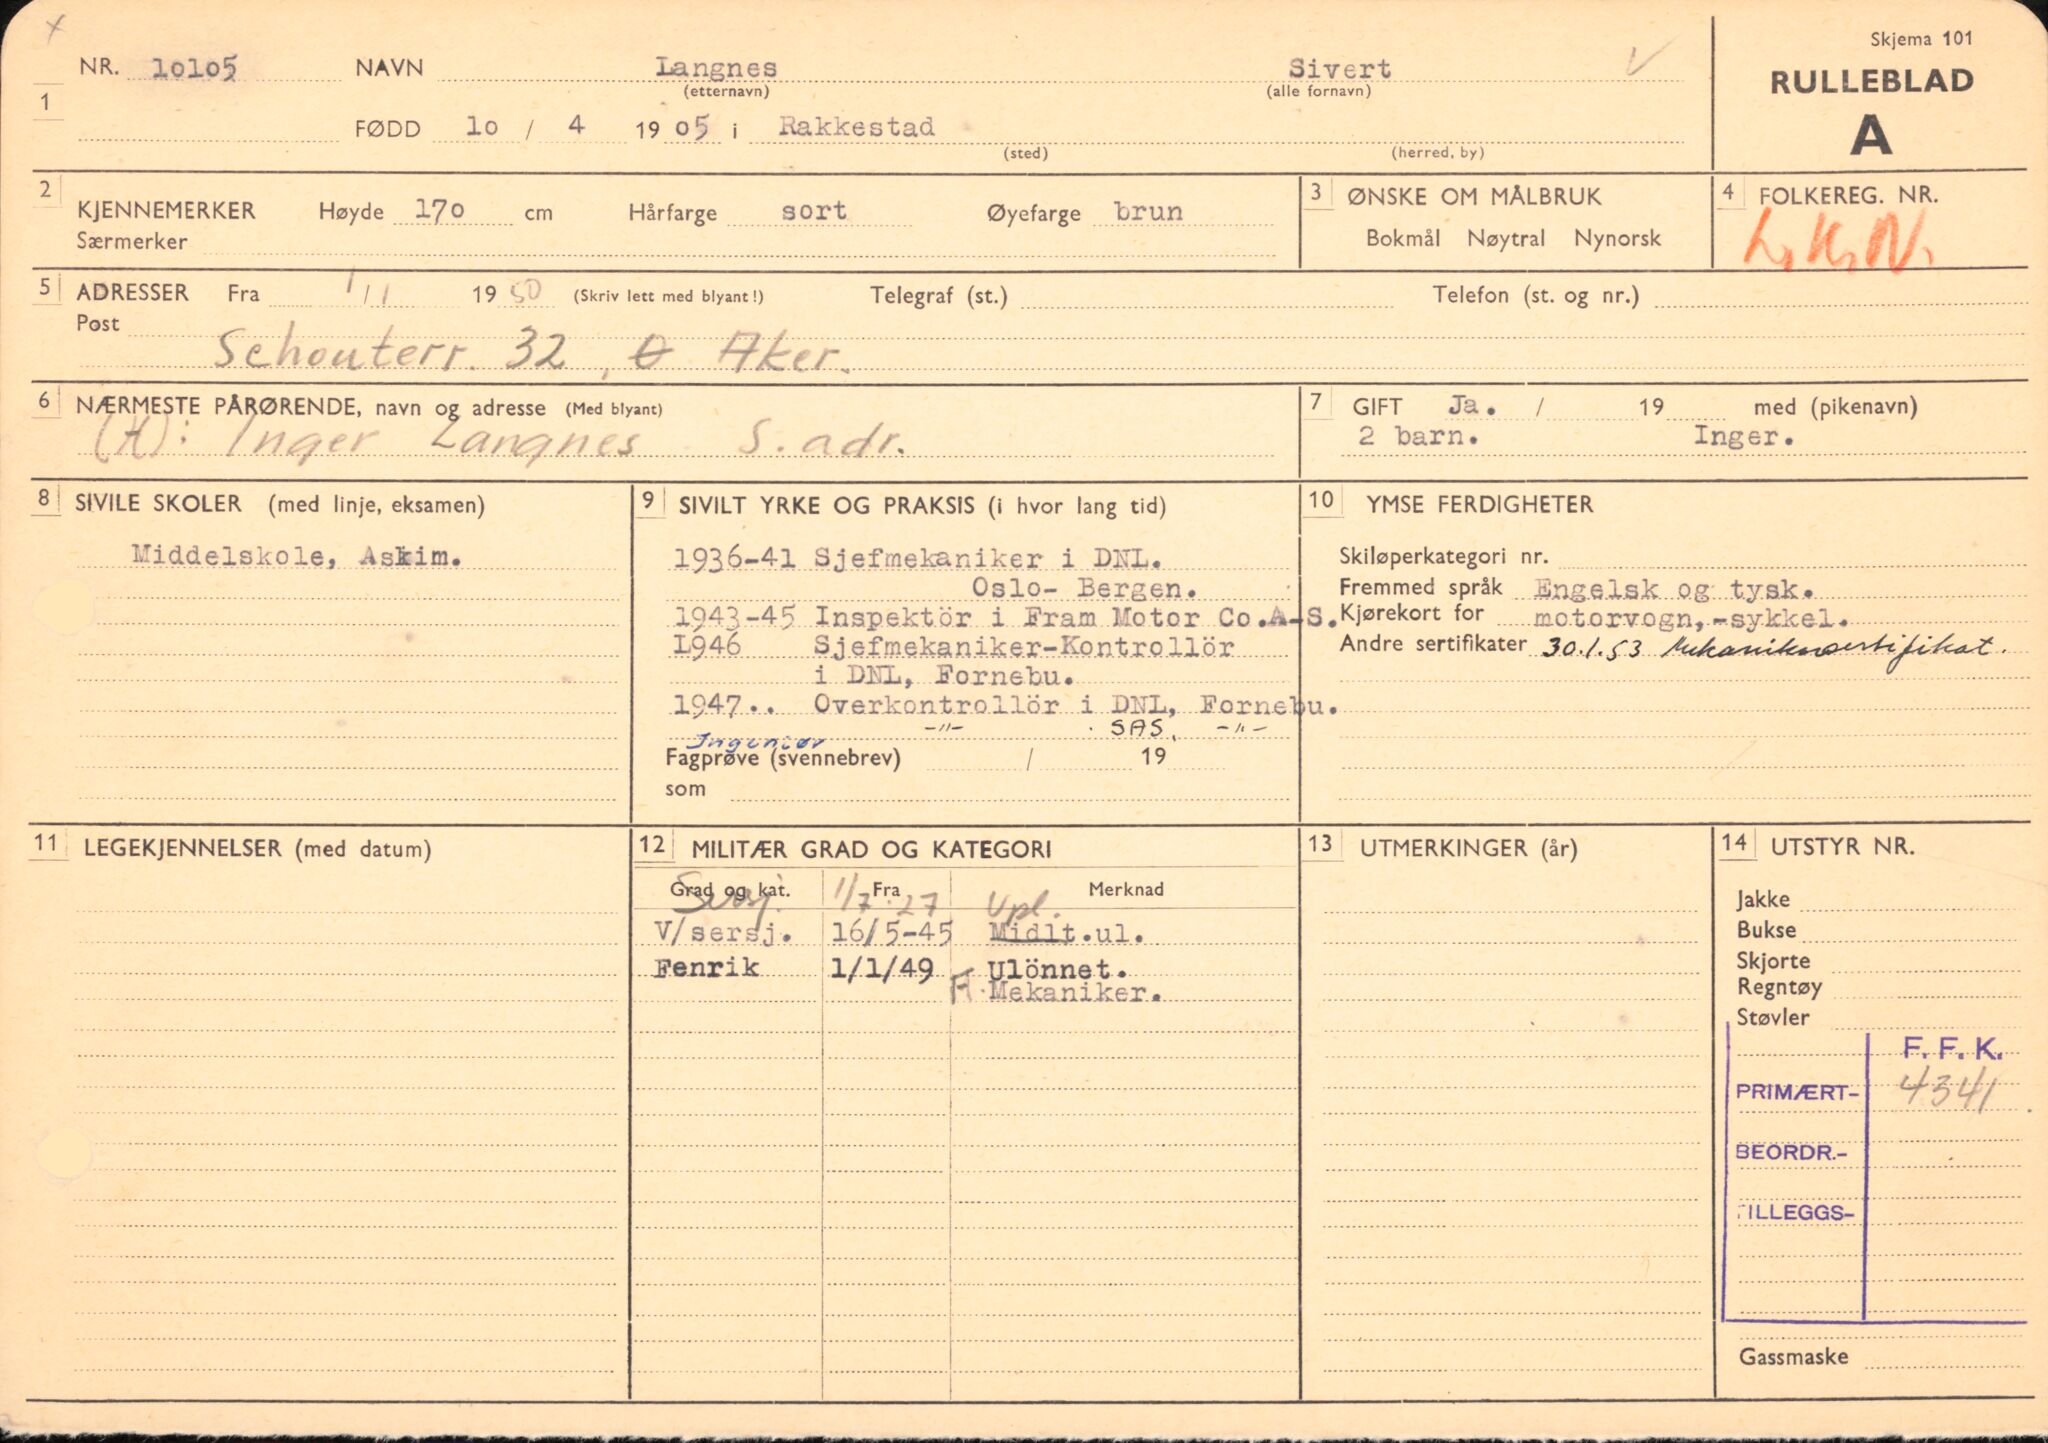 Skjema 101
RULLEBLAD
A
NR. 10105 NAVN Langnes Sivert
(etternavn) (alle fornavn)
1
FØDD 10 / 4 1905 i Rakkestad
(sted) (herred, by)
2 KJENNEMERKER Høyde 170 cm Hårfarge sort Øyefarge brun
Særmerker
3 ØNSKE OM MÅLBRUK
Bokmål Nøytral Nynorsk
4 FOLKEREG. NR.
L.K.N.
5 ADRESSER Fra 1/1 1950 (Skriv lett med blyant!) Telegraf (st.) Telefon (st. og nr.)
Post
Schouterr. 32, Ø Aker.
6 NÆRMESTE PÅRØRENDE, navn og adresse (Med blyant)
(H): Inger Langnes S. adr.
7 GIFT Ja. / 19 med (pikenavn)
2 barn. Inger.
8 SIVILE SKOLER (med linje, eksamen)
Middelskole, Askim.
9 SIVILT YRKE OG PRAKSIS (i hvor lang tid)
1936-41 Sjefmekaniker i DNL.
Oslo- Bergen.
1943-45 Inspektör i Fram Motor Co.A-S.
L946 Sjefmekaniker-Kontrollör
i DNL, Fornebu.
1947.. Overkontrollör i DNL, Fornebu.
-"- SAS. -"-
Ingeniør
Fagprøve (svennebrev) / 19
som
10 YMSE FERDIGHETER
Skiløperkategori nr.
Fremmed språk Engelsk og tysk.
Kjørekort for motorvogn,-sykkel.
Andre sertifikater 30.1.53 Mekanikersertifikat.
11 LEGEKJENNELSER (med datum)
12 MILITÆR GRAD OG KATEGORI
Grad og kat. Fra Merknad
Sersj. 1/7.27 Vpl.
V/sersj. 16/5-45 Midlt.ul.
Fenrik 1/1/49 Ulönnet.
F. Mekaniker.
13 UTMERKINGER (år)
14 UTSTYR NR.
Jakke
Bukse
Skjorte
Regntøy
Støvler
F. F. K.
PRIMÆRT- 4341
BEORDR.-
TILLEGGS-
Gassmaske